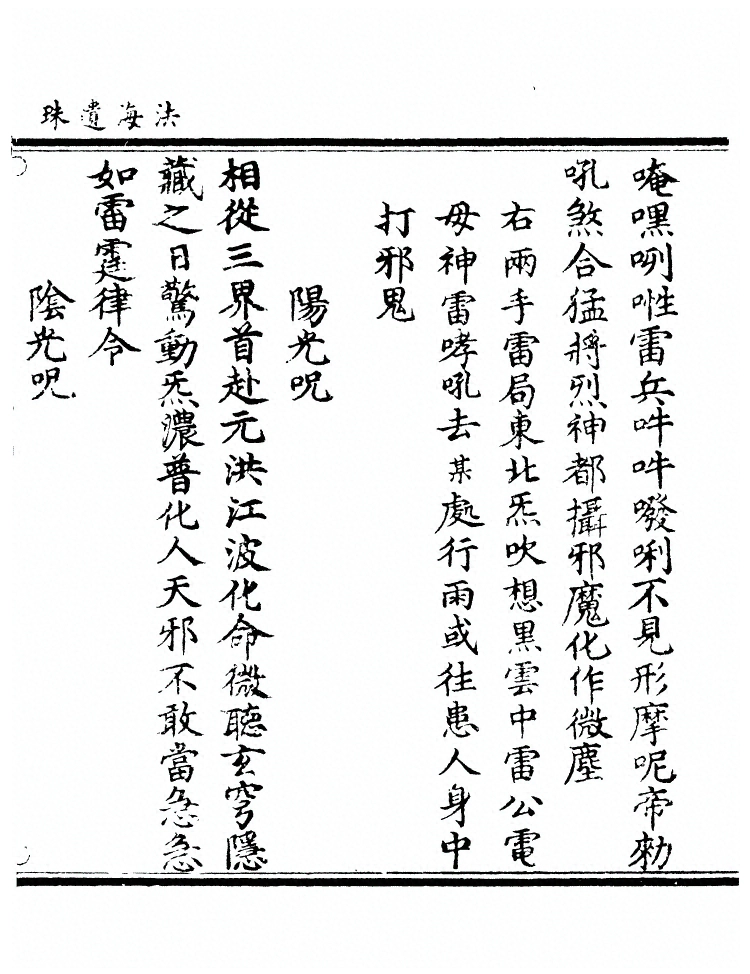 法海遺珠
唵嘿咧㗌雷兵吽吽㘔唎不見形摩呢帝勑
吼煞合猛將烈神都攝邪魔化作微塵
右兩手雷局東北炁吹想黑雲中雷公電
母神雷哮吼去某處行雨或往患人身中
打邪鬼
陽光呪
相從三界首赴元洪江波化命微聽玄穹隱
藏之日驚動炁濃普化人天邪不敢當急急
如雷霆律令
陰光呪